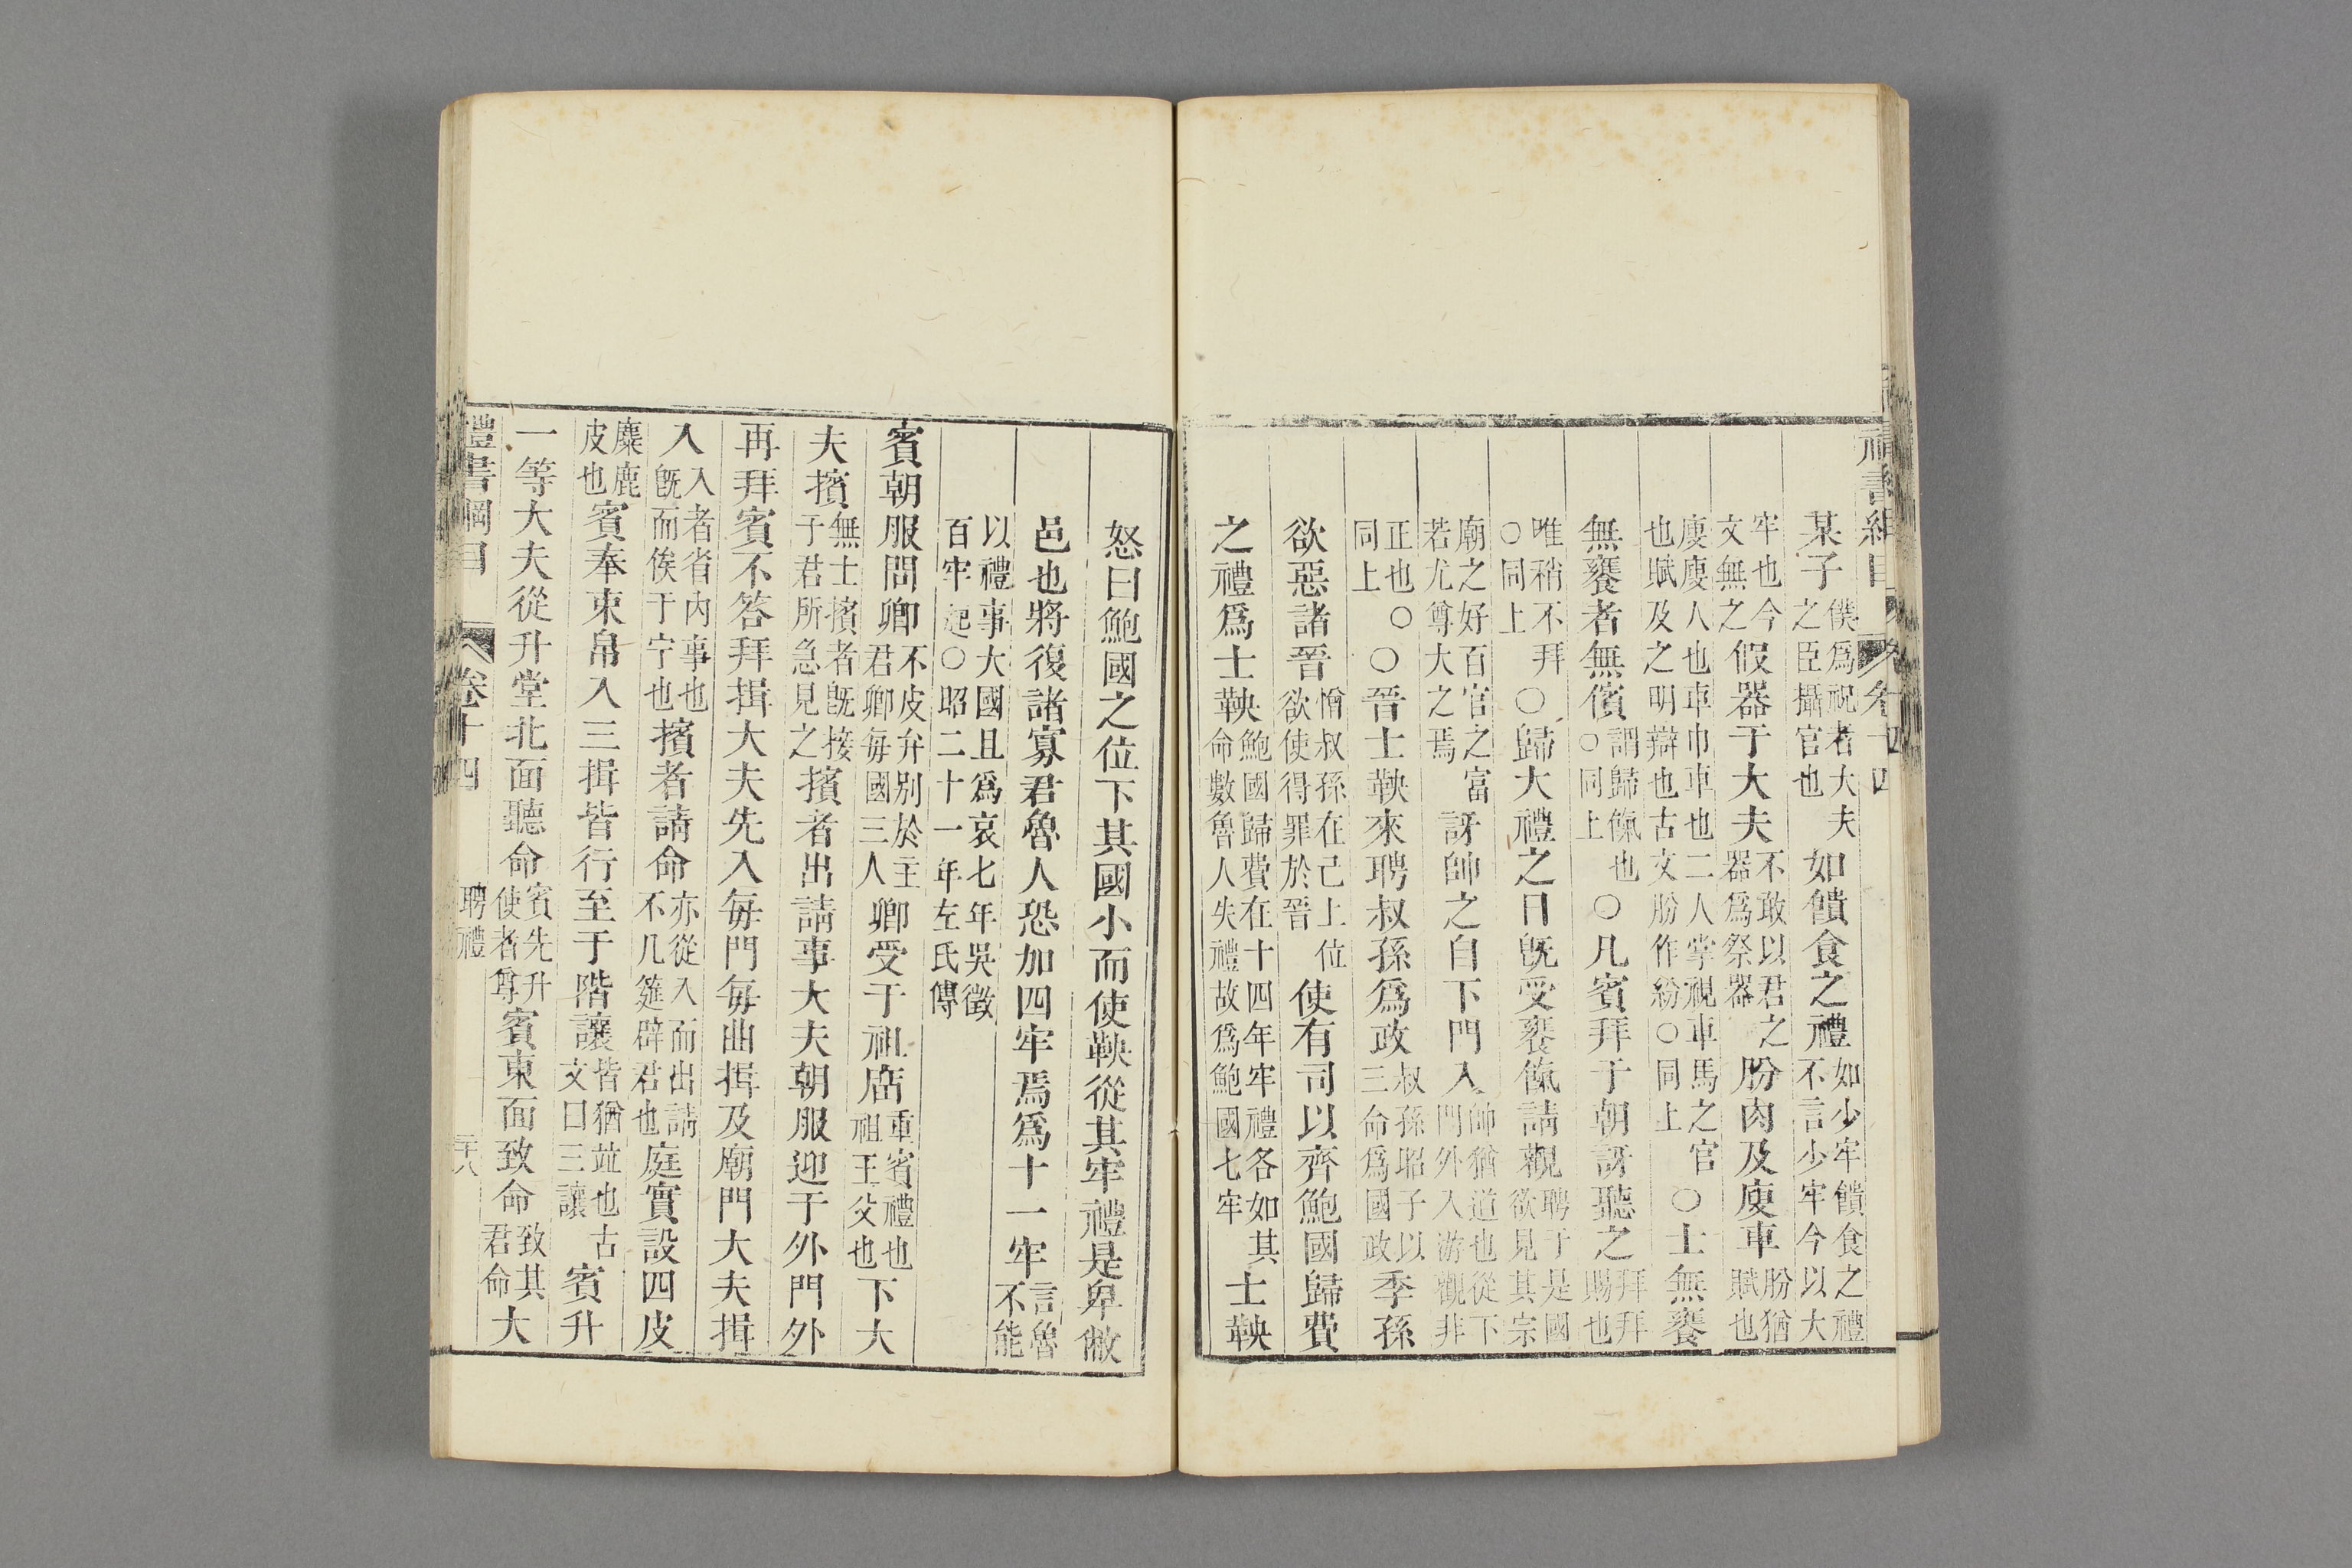 禮書綱目 卷十四
某子僕爲祝者大夫之臣攝官也如饋食之禮如少牢饋食之禮不言少牢今以大
牢也今文無之假器于大夫不敢以君之器爲祭器肦肉及廋車肦猶賦也
廋廋人也車巾車也二人掌視車馬之官也賦及之明辯也古文肦作紛○同上○士無饔
無饔者無儐謂歸餼也○同上○凡賓拜于朝訝聽之拜拜賜也
唯稍不拜○同上○歸大禮之日旣受饔餼請觀聘于是國欲見其宗
廟之好百官之富若尤尊大之焉訝帥之自下門入帥猶道也從下門外入游觀非
正也○同上○晉士鞅來聘叔孫爲政叔孫昭子以三命爲國政季孫
欲惡諸晉憎叔孫在己上位欲使得罪於晉使有司以齊鮑國歸費
之禮爲士鞅鮑國歸費在十四年牢禮各如其命數魯人失禮故爲鮑國七牢士鞅
怒曰鮑國之位下其國小而使鞅從其牢禮是卑敝
邑也將復諸寡君魯人恐加四牢焉爲十一牢言魯不能
以禮事大國且爲哀七年吳徵百牢起○昭二十一年左氏傳
賓朝服問卿不皮弁別於主君卿每國三人卿受于祖廟重賓禮也祖王父也下大
夫擯無士擯者旣接于君所急見之擯者出請事大夫朝服迎于外門外
再拜賓不答拜揖大夫先入每門每曲揖及廟門大夫揖
入入者省內事也旣而俟于宁也擯者請命亦從入而出請不几筵辟君也庭實設四皮
麋鹿皮也賓奉束帛入三揖皆行至于階讓皆猶竝也古文曰三讓賓升
一等大夫從升堂北面聽命賓先升使者尊賓東面致命致其君命大
禮書綱目 卷十四 聘禮 三十八